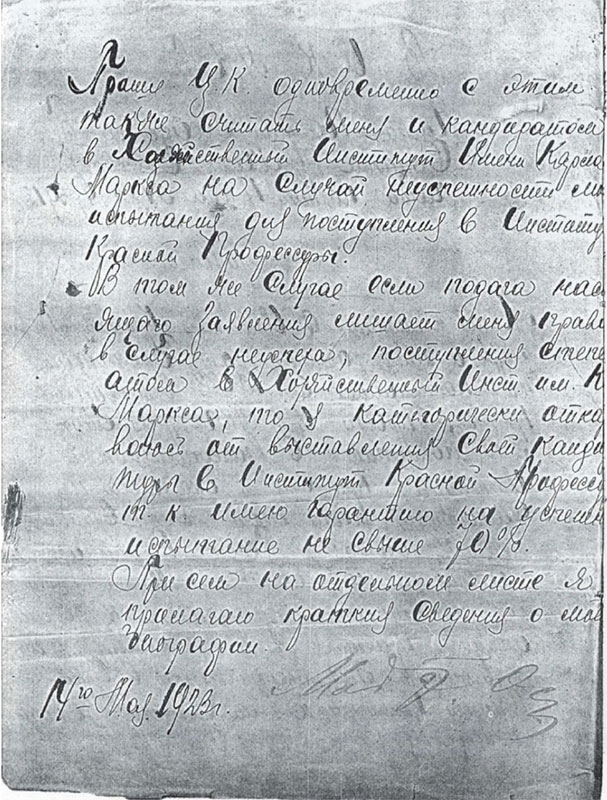 Прошу Ц.К. одновременно с этим
также считать меня и кандидатом
в Хозяйственный Институт Имени Карла
Маркса на Случай Неуспешности
испытания для поступления в Институ
Красной Профессуры.
В том же Случае если подача нас
ящаго Заявления лишает меня права
в Случае неуспеха, поступления стипе
атом в Хозяйственный Инст. им. К
Маркса, то я категорически отка
вываюсь от выставления Своей Канди
туры в Институт Красной Професс
т. к. имею гарантию на успешн
испытание не свыше 70%.
При сем на отдельном листе я
прилагаю краткия Сведения о мо
биографии.
14го Мая 1923 г.